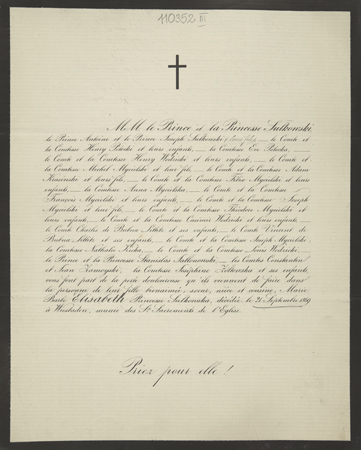 110352 III
M.M. le Prince et la Princesse Sulkowski,
le Prince Antoine et le Prince Joseph Sulkowski leurs fils, le Comte et
la Comtesse Henry Potocki et leurs enfants, la Comtesse Eve Potocka,
le Comte et la Comtesse Henry Wodzicki et leurs enfants, le Comte et
la Comtesse Michel Mycielski et leur fils, le Comte et la Comtesse Adam
Krasinski et leurs fils, le Comte et la Comtesse Félix Mycielski et leurs
enfants, la Comtesse Anna Mycielska, le Comte et la Comtesse
François Mycielski et leurs fils, le Comte et la Comtesse Joseph
Mycielski et leur fils, le Comte et la Comtesse Théodore Mycielski et
leurs enfants, le Comte et la Comtesse Casimir Wodzicki et leurs enfants
le Comte Charles de Bobrow et ses enfants, le Comte Vincent de
Bobrow et ses enfants, le Comte et la Comtesse Joseph Mycielski
la Comtesse Nathalie, le Comte et la Comtesse Louis Wodzicki,
le Prince et la Princesse Stanislas Sulkowski, les Comtes Constantin
et Jean Zamoyski, la Comtesse Joséphine et ses enfants,
vous font part de la perte douloureuse qu'ils viennent de faire dans
la personne de leur fille bienaimée, soeur, nièce et cousine, Marie
Elisabeth Princesse Sulkowska, décédée le 21 Septembre 1869
à Wiesbaden, munie des Sts Sacrements de l'Eglise.
Priez pour elle!